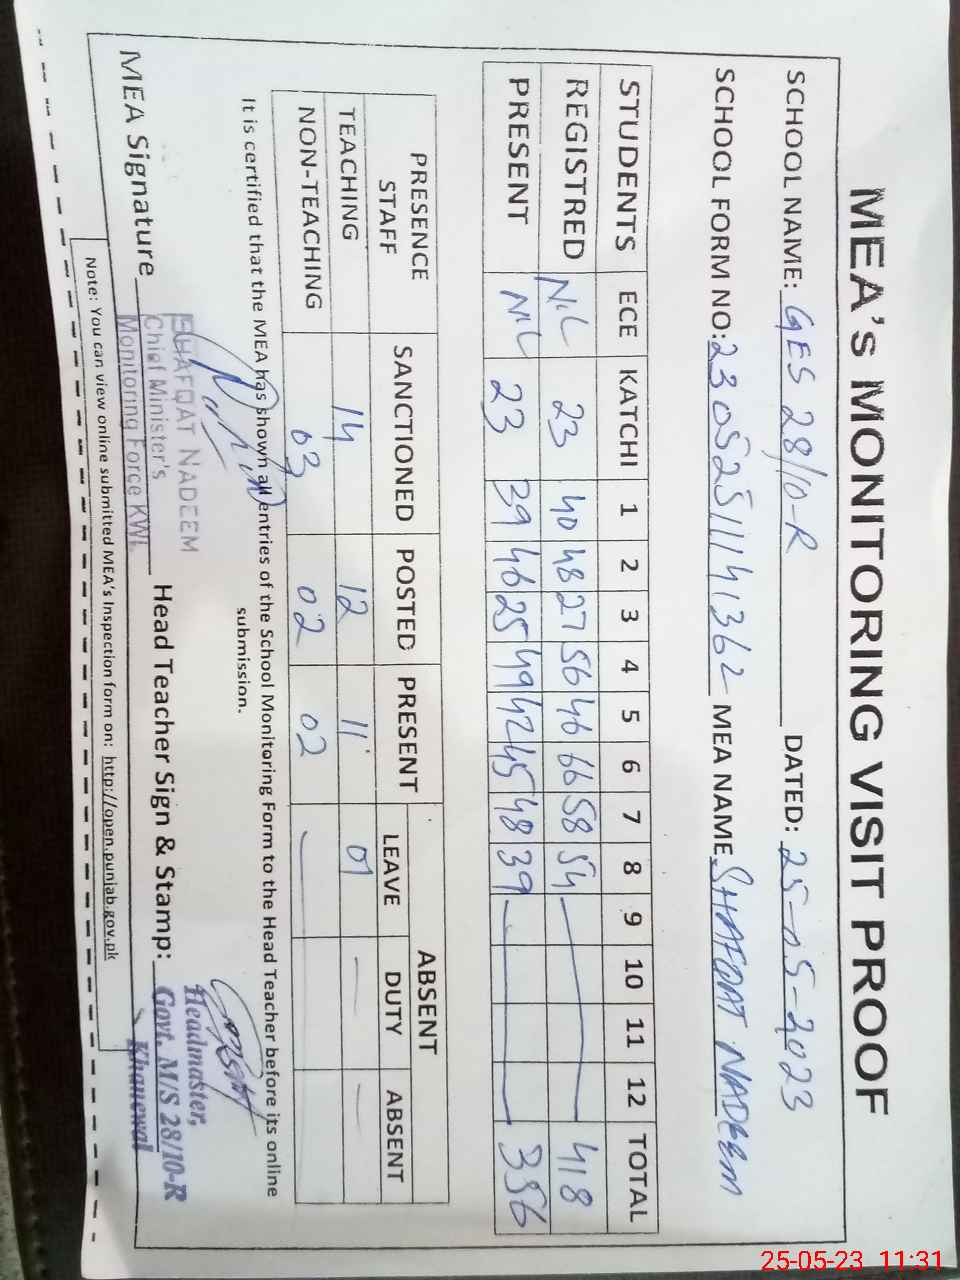 MEA's MONITORING VISIT PROOF
SCHOOL NAME: GES 28/10-R DATED: 25-05-2023
SCHOOL FORM NO: 23052511141362 MEA NAME SHAFQAT NADEEM
STUDENTS ECE KATCHI 1 2 3 4 5 6 7 8 9 10 11 12 TOTAL
REGISTRED NiL 23 40 48 27 56 46 66 58 54 418
PRESENT NiL 23 39 46 25 49 42 45 48 39 356
PRESENCE STAFF SANCTIONED POSTED PRESENT ABSENT
LEAVE DUTY ABSENT
TEACHING 14 12 11 01 — —
NON-TEACHING 03 02 02 —
It is certified that the MEA has shown all entries of the School Monitoring Form to the Head Teacher before its online
submission.
SHAFQAT NADEEM
Chief Minister's
Monitoring Force KWL
MEA Signature Head Teacher Sign & Stamp:
Headmaster,
Govt. M/S 28/10-R
Khanewal
Note: You can view online submitted MEA's Inspection form on: http://open.punjab.gov.pk
25-05-23 11:31